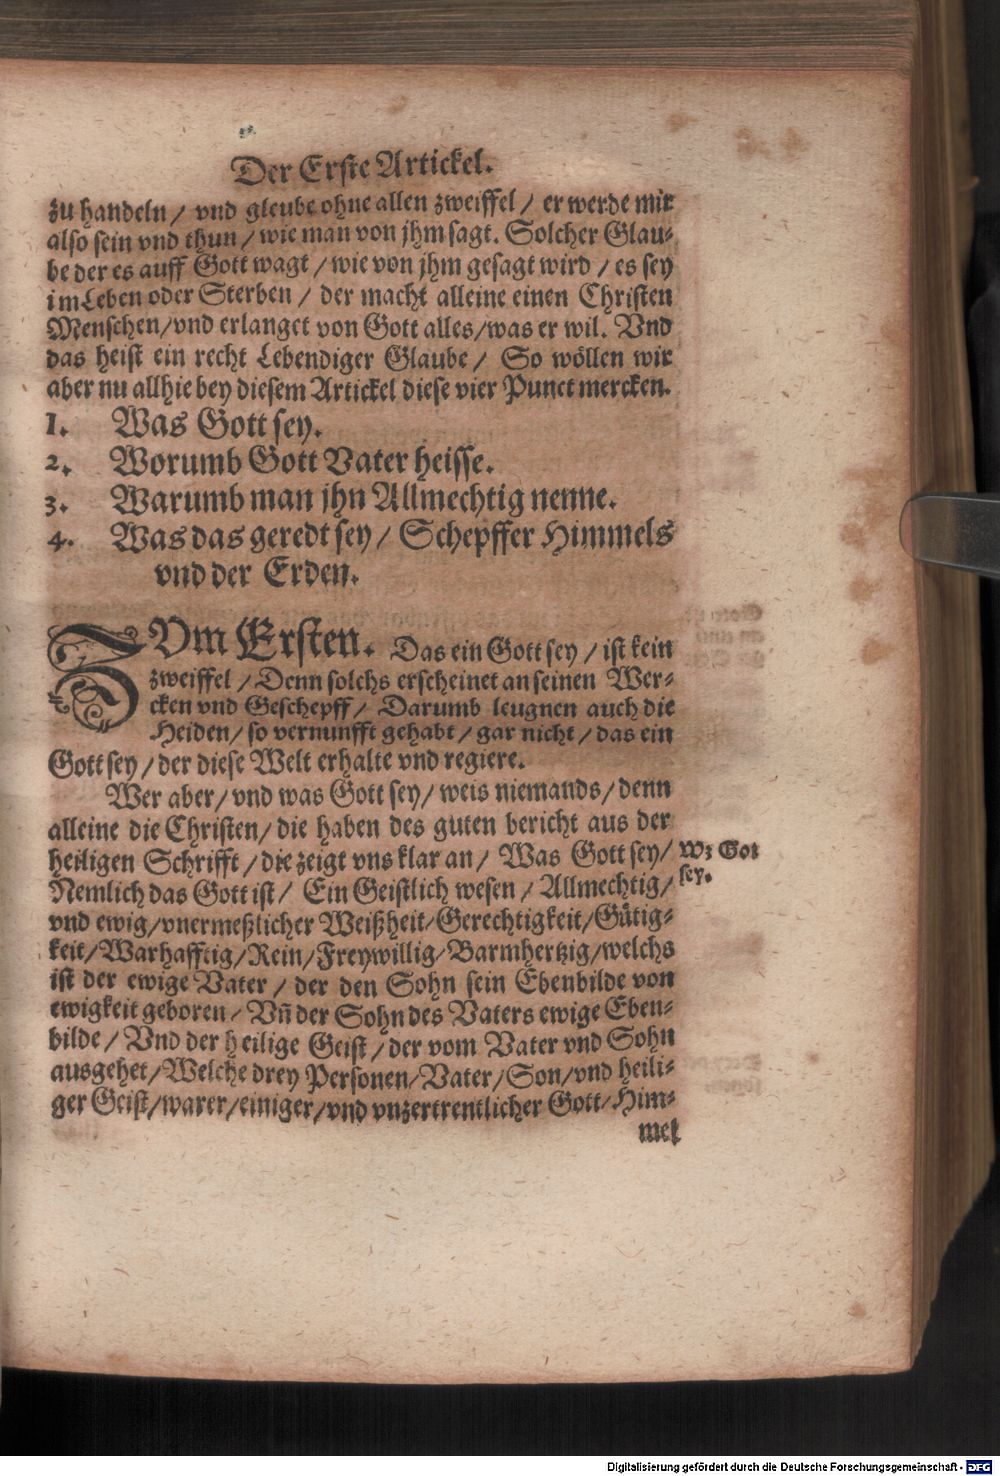 Der Erste Artickel.
zu handeln / vnd gleube ohne allen zweiffel / er werde mir
also sein vnd thun / wie man von jhm sagt. Solcher Glau-
be der es auff Gott wagt / wie von jhm gesagt wird / es sey
im Leben oder Sterben / der macht alleine einen Christen
Menschen / vnd erlanget von Gott alles / was er wil. Vnd
das heist ein recht Lebendiger Glaube / So wöllen wir
aber nu allhie bey diesem Artickel diese vier Punct mercken.
1. Was Gott sey.
2. Worumb Gott Vater heisse.
3. Warumb man jhn Allmechtig nenne.
4. Was das geredt sey / Schepffer Himmels
vnd der Erden.
ZVm Ersten. Das ein Gott sey / ist kein
zweiffel / Denn solchs erscheinet an seinen Wer-
cken vnd Geschepff / Darumb leugnen auch die
Heiden / so vernunfft gehabt / gar nicht / das ein
Gott sey / der diese Welt erhalte vnd regiere.
Wer aber / vnd was Gott sey / weis niemands / denn
alleine die Christen / die haben des guten bericht aus der
heiligen Schrifft / die zeigt vns klar an / Was Gott sey /
Wz Got
sey.
Nemlich das Gott ist / Ein Geistlich wesen / Allmechtig /
vnd ewig / vnermeßlicher Weißheit / Gerechtigkeit / Gütig-
keit / Warhafftig / Rein / Freywillig / Barmhertzig / welchs
ist der ewige Vater / der den Sohn sein Ebenbilde von
ewigkeit geboren / Vñ der Sohn des Vaters ewige Eben-
bilde / Vnd der heilige Geist / der vom Vater vnd Sohn
ausgehet / Welche drey Personen / Vater / Son / vnd heili-
ger Geist / warer / einiger / vnd vnzertrentlicher Gott / Him-
mel
Digitalisierung gefördert durch die Deutsche Forschungsgemeinschaft - DFG